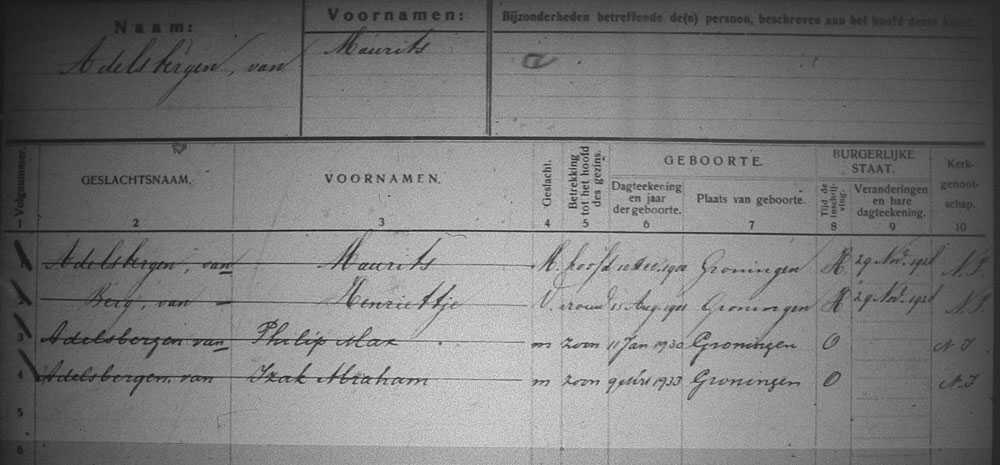 Naam: Voornamen: Bijzonderheden betreffende de(n) persoon, beschreven aan het hoofd dezer kaart.
Adelsbergen, van Maurits
Volgnummer. GESLACHTSNAAM. VOORNAMEN. Geslacht. Betrekking tot het hoofd des gezins. GEBOORTE. Dagteekening en jaar der geboorte. Plaats van geboorte. BURGERLIJKE STAAT. Tijd de inschrijving. Veranderingen en hare dagteekening. Kerkgenootschap.
1 2 3 4 5 6 7 8 9 10
1 Adelsbergen, van Maurits M. hoofd Groningen H 29 Nov. 1928 N.I.
2 Berg, van Henriettje V. vrouw 15 Aug. Groningen H 29 Nov. 1928 N.I.
3 Adelsbergen van Philip Max m zoon 11 Jan 1930 Groningen O N.I
4 Adelsbergen, van Izak Abraham m zoon 9 1933 Groningen O N.I
5
6